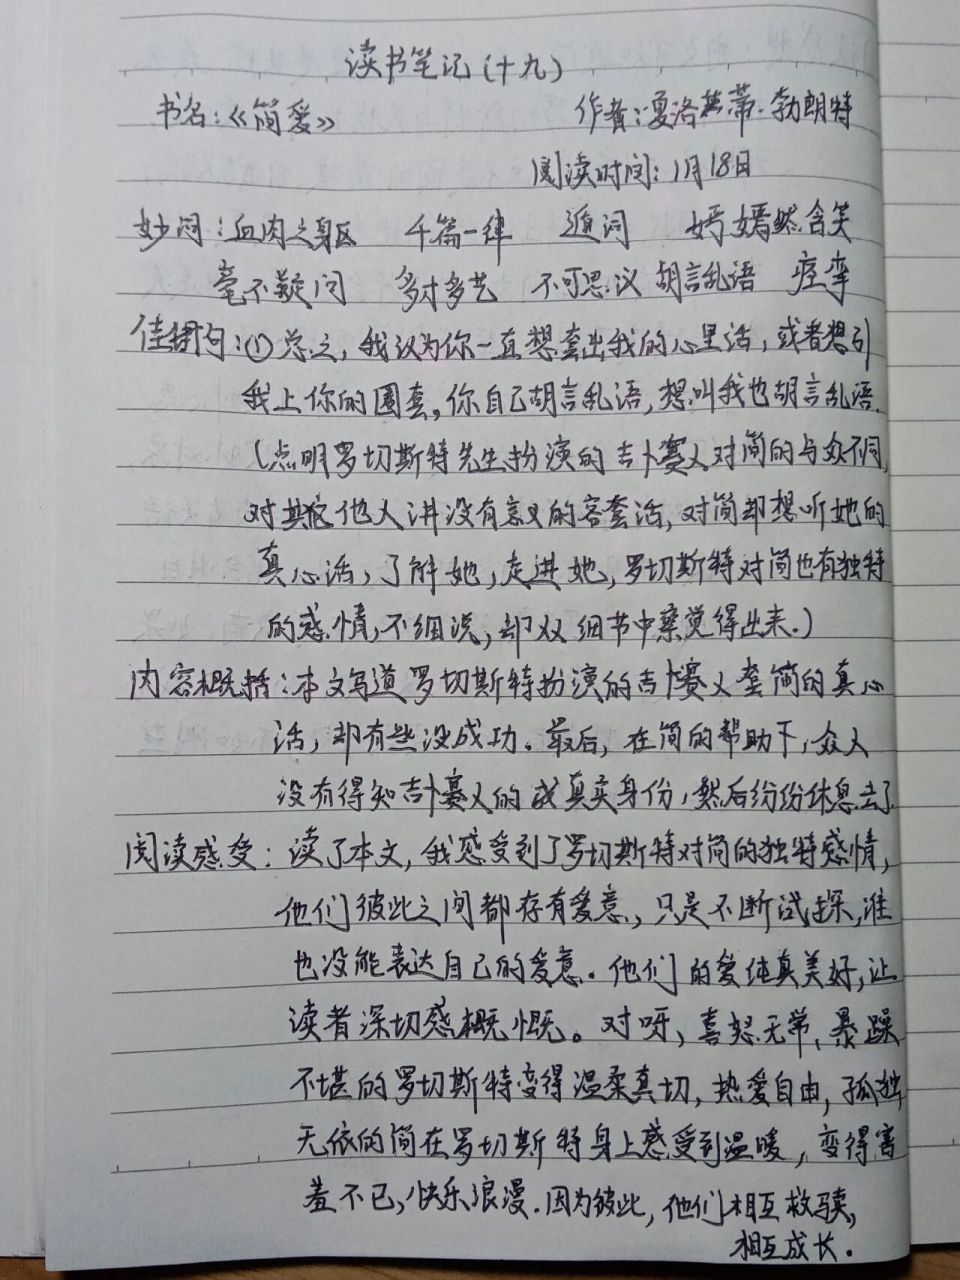 读书笔记(十九)
书名:《简爱》 作者:夏洛蒂·勃朗特
阅读时间:1月18日
妙词:血肉之躯 千篇一律 遁词 嫣然含笑
毫不疑问 多才多艺 不可思议 胡言乱语 痉挛
佳句:①总之,我认为你一直想套出我的心里话,或者想引
我上你的圈套。你自己胡言乱语,想叫我也胡言乱语.
(点明罗切斯特先生扮演的吉卜赛人对简的与众不同,
对其他人讲没有意义的客套话,对简却想听她的
真心话,了解她,走进她,罗切斯特对简也有独特
的感情,不细说,却从细节中察觉得出来.)
内容概括:本文写道罗切斯特扮演的吉卜赛人套简的真心
话,却有些没成功.最后,在简的帮助下,众人
没有得知吉卜赛人的真实身份,然后纷纷休息去了
阅读感受:读了本文,我感受到了罗切斯特对简的独特感情,
他们彼此之间都存有爱意,只是不断试探,谁
也没能表达自己的爱意.他们的爱纯真美好,让
读者深切感慨。对呀,喜怒无常,暴躁
不堪的罗切斯特变得温柔真切,热爱自由,孤独
无依的简在罗切斯特身上感受到温暖,变得害
羞不已,快乐浪漫.因为彼此,他们相互救赎,
相互成长.